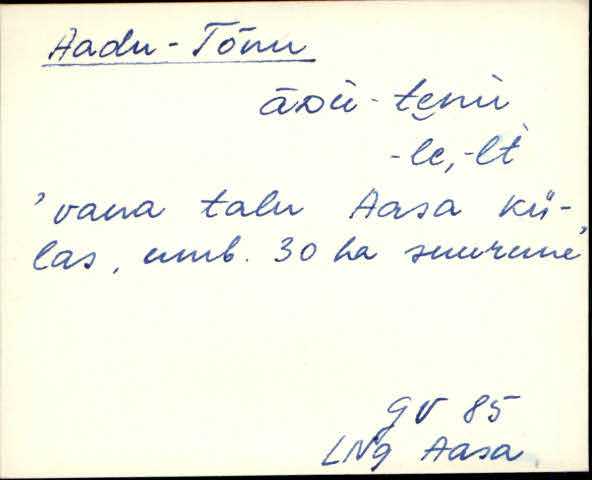 Aadu-Tõnu
āᴅu̇-te̮nu̇
-le, -lt
'vana talu Aasa kü-
las, umb. 30 ha suurune'
GV 85
LNg Aasa